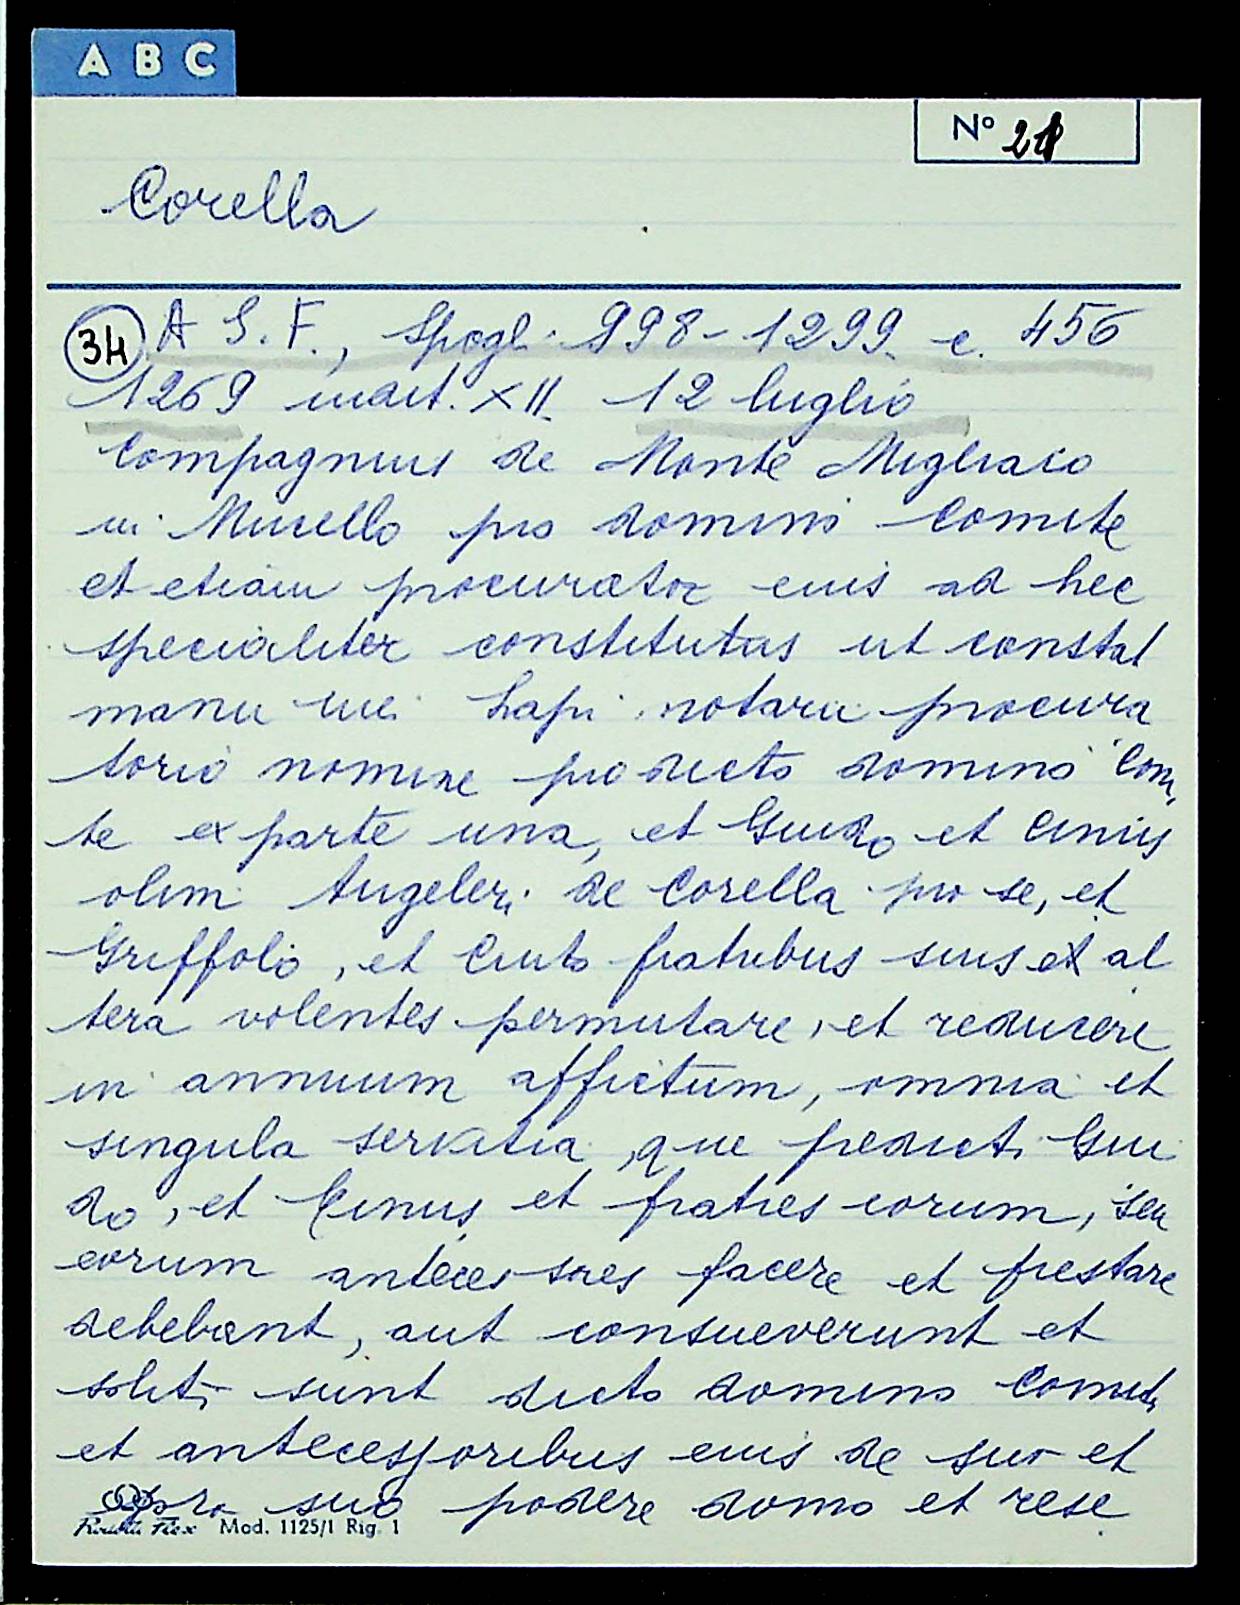 A B C
Nº 21
Corella
34 A S. F., Spogli 998-1299. c. 456
1269 indict. XII. 12 luglio
Compagnus de Monte Migliaco
in Mucello pro domino Comite
et etiam procurator eius ad hec
specialiter constitutus ut constat
manu mei Lapi notarii procura
torio nomine pro dicto domino Comi
te ex parte una, et Guido et Cinus
olim Angeleri de Corella pro se, et
Griffolo, et Cinto fratribus suis ex al
tera volentes permutare, et reducere
in annuum affictum, omnia et
singula servitia, que predicti Gui
do, et Cinus et fratres eorum, seu
eorum antecessores facere et prestare
debebant, aut consueverunt et
soliti sunt dicto domino Comiti
et antecessoribus eius de suo et
pro suo podere domo et rese
Mod. 1125/1 Rig. 1